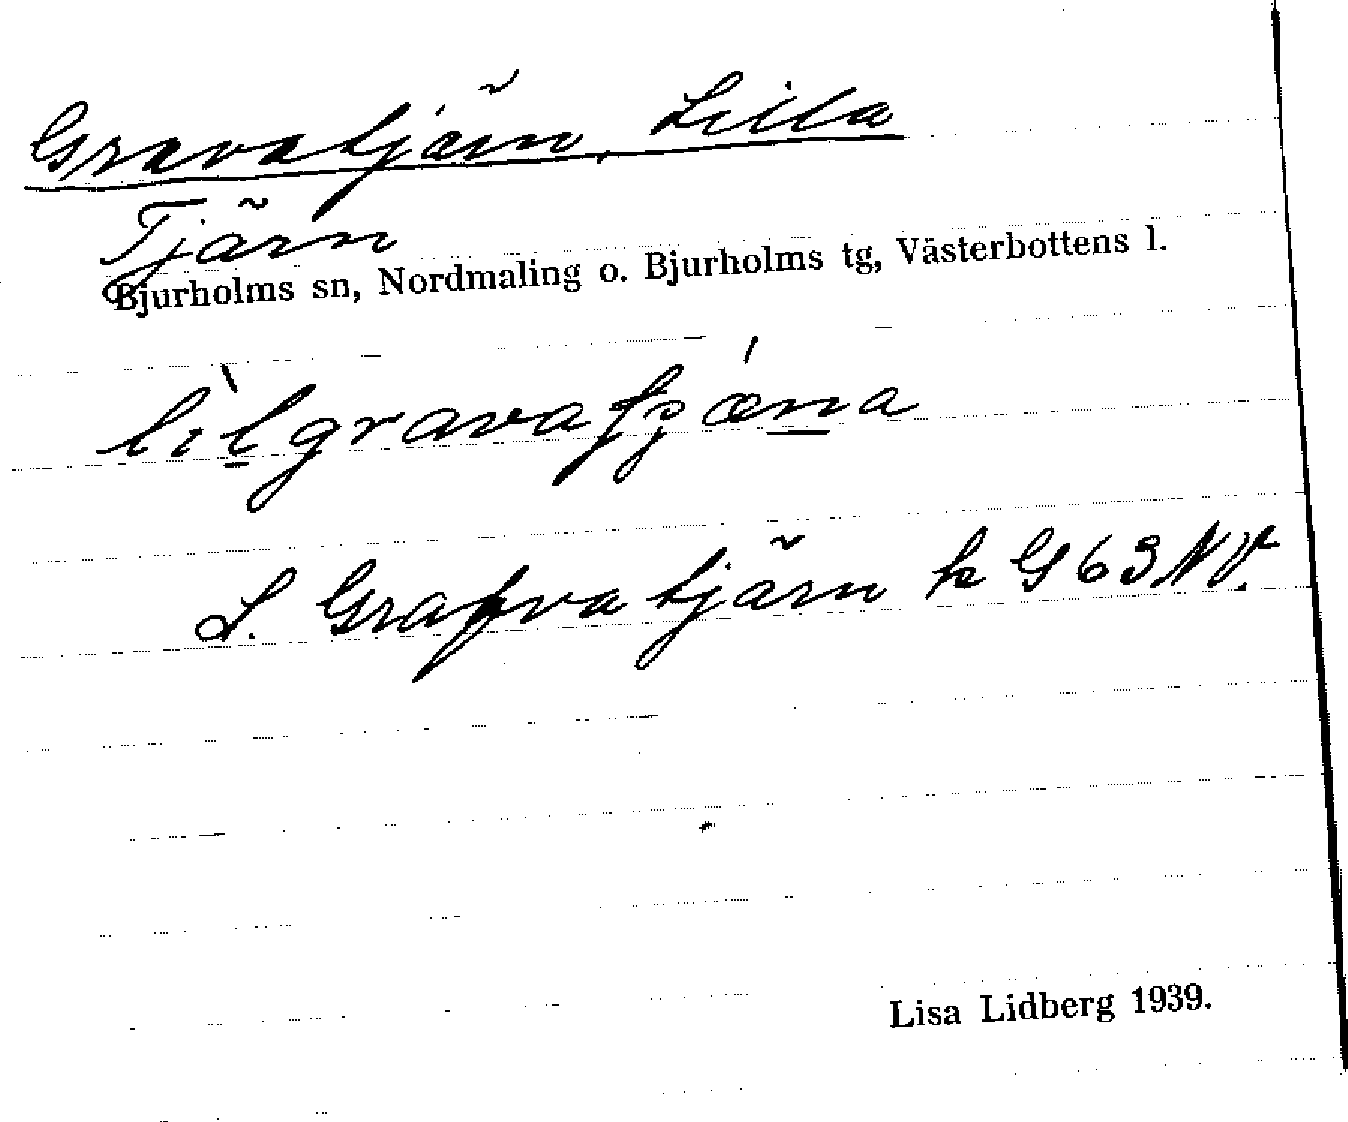 Gravatjärn, Lilla
Tjärn
Bjurholms sn, Nordmaling o. Bjurholms tg, Västerbottens l.
L. Grafvatjärn k G 63 NV.
Lisa Lidberg 1939.